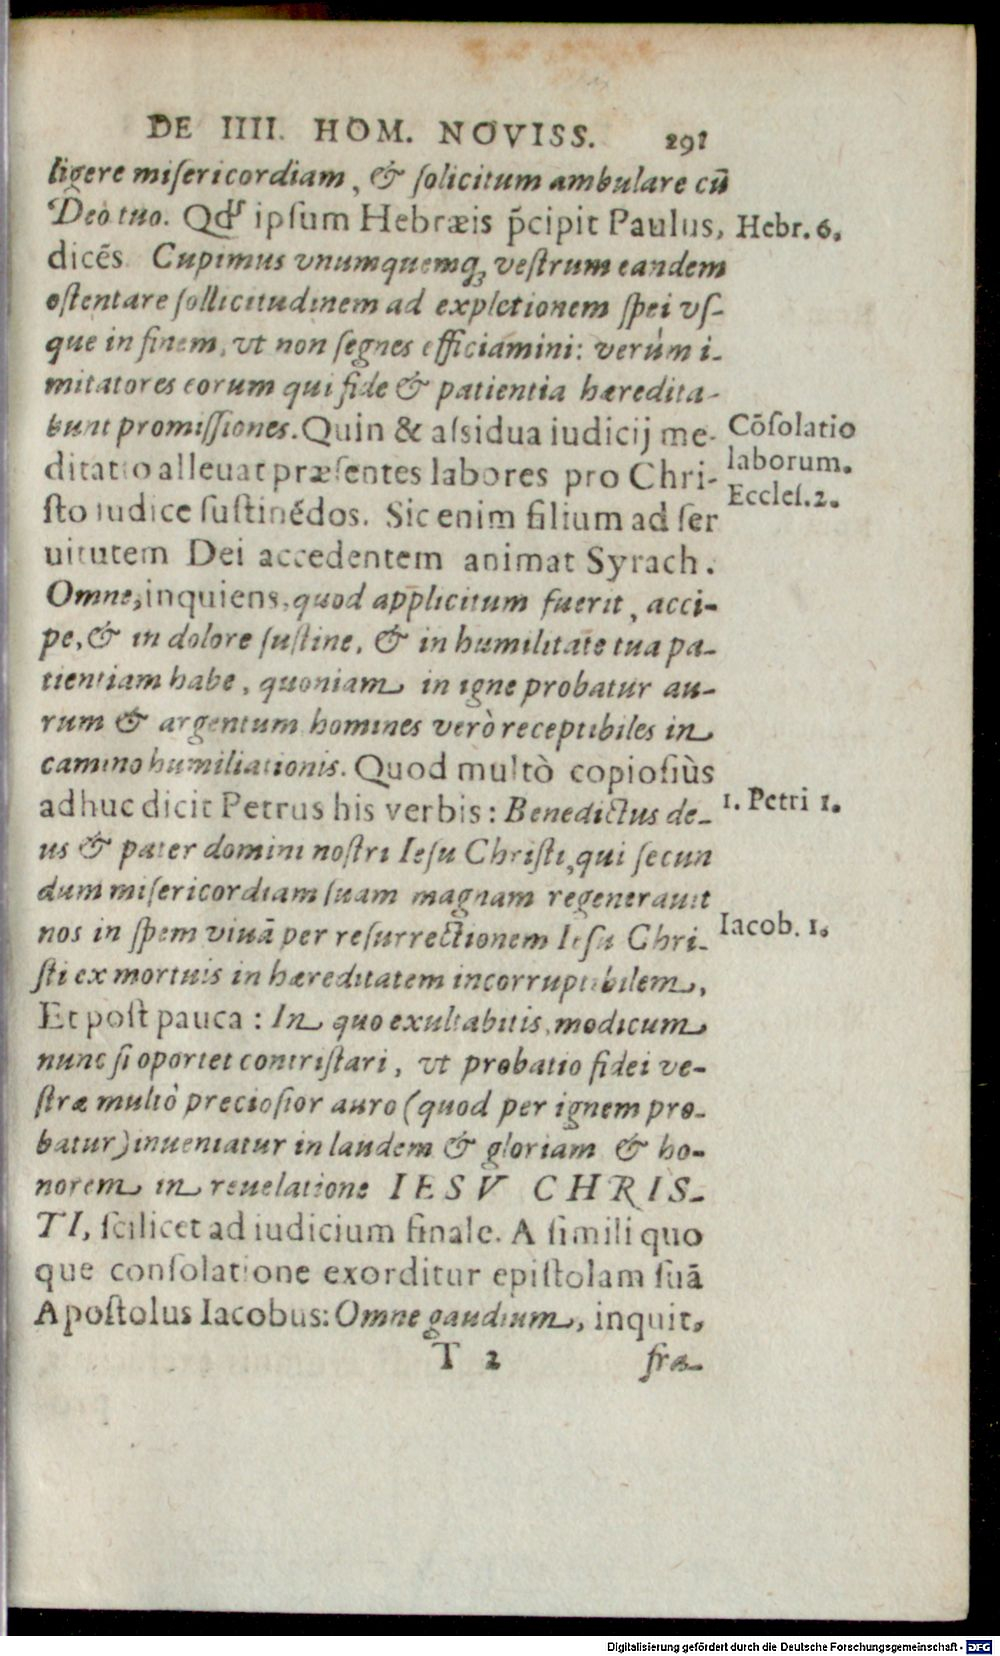 DE IIII. HOM. NOVISS. 291
ligere misericordiam, & solicitum ambulare cū
Deo tuo. Qd ipsum Hebræis p̄cipit Paulus,
Hebr. 6.
dicēs Cupimus vnumquemq; vestrum eandem
ostentare sollicitudinem ad expletionem spei vs-
que in finem, vt non segnes efficiamini: verùm i-
mitatores eorum qui fide & patientia hæredita-
bunt promissiones. Quin & assidua iudicij me-
Cōsolatio
laborum.
Eccles. 2.
ditatio alleuat præsentes labores pro Chri-
sto iudice sustinédos. Sic enim filium ad ser
uitutem Dei accedentem animat Syrach.
Omne, inquiens, quod applicitum fuerit, acci-
pe, & in dolore sustine, & in humilitate tua pa-
tientiam habe, quoniam in igne probatur au-
rum & argentum homines verò receptibiles in
camino humiliationis. Quod multò copiosiùs
adhuc dicit Petrus his verbis: Benedictus de-
1. Petri 1.
us & pater domini nostri Iesu Christi, qui secun
dum misericordiam suam magnam regenerauit
nos in spem viuā per resurrectionem Iesu Chri-
Iacob. 1.
sti ex mortuis in hæreditatem incorruptibilem,
Et post pauca: In quo exultabitis, modicum
nunc si oportet contristari, vt probatio fidei ve-
stræ multò preciosior auro (quod per ignem pro-
batur) inueniatur in laudem & gloriam & ho-
norem in reuelatione IESV CHRIS-
TI, scilicet ad iudicium finale. A simili quo
que consolatione exorditur epistolam suā
Apostolus Iacobus: Omne gaudium, inquit,
T 2 fra-
Digitalisierung gefördert durch die Deutsche Forschungsgemeinschaft - DFG